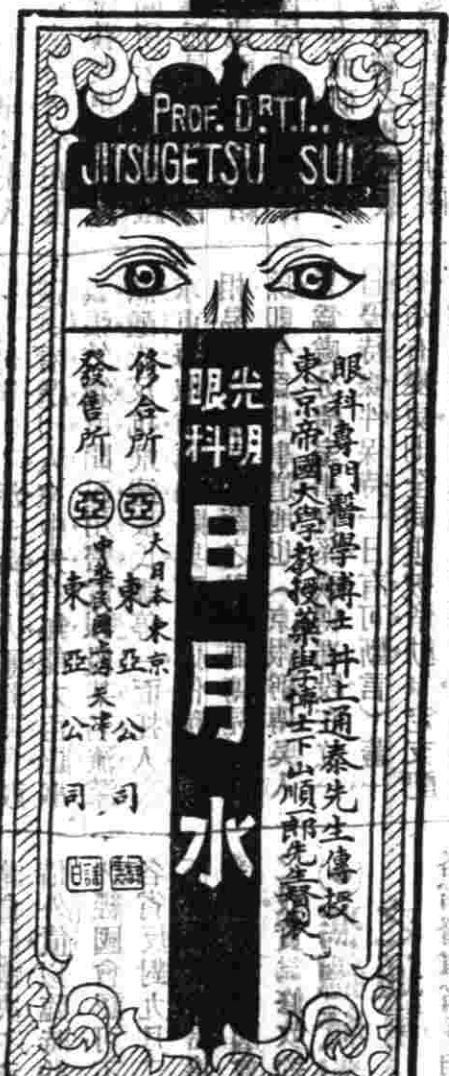 PROF. DR T.I..
JITSUGETSU SUI
眼科專門醫學博士井上通泰先生傳授
東京帝國大學教授藥學博士下山順郎先生督製
光明
眼科
日月水
修合所
大日本東京
亞東亞公司
發售所
中華民國上海天津
亞東亞公司